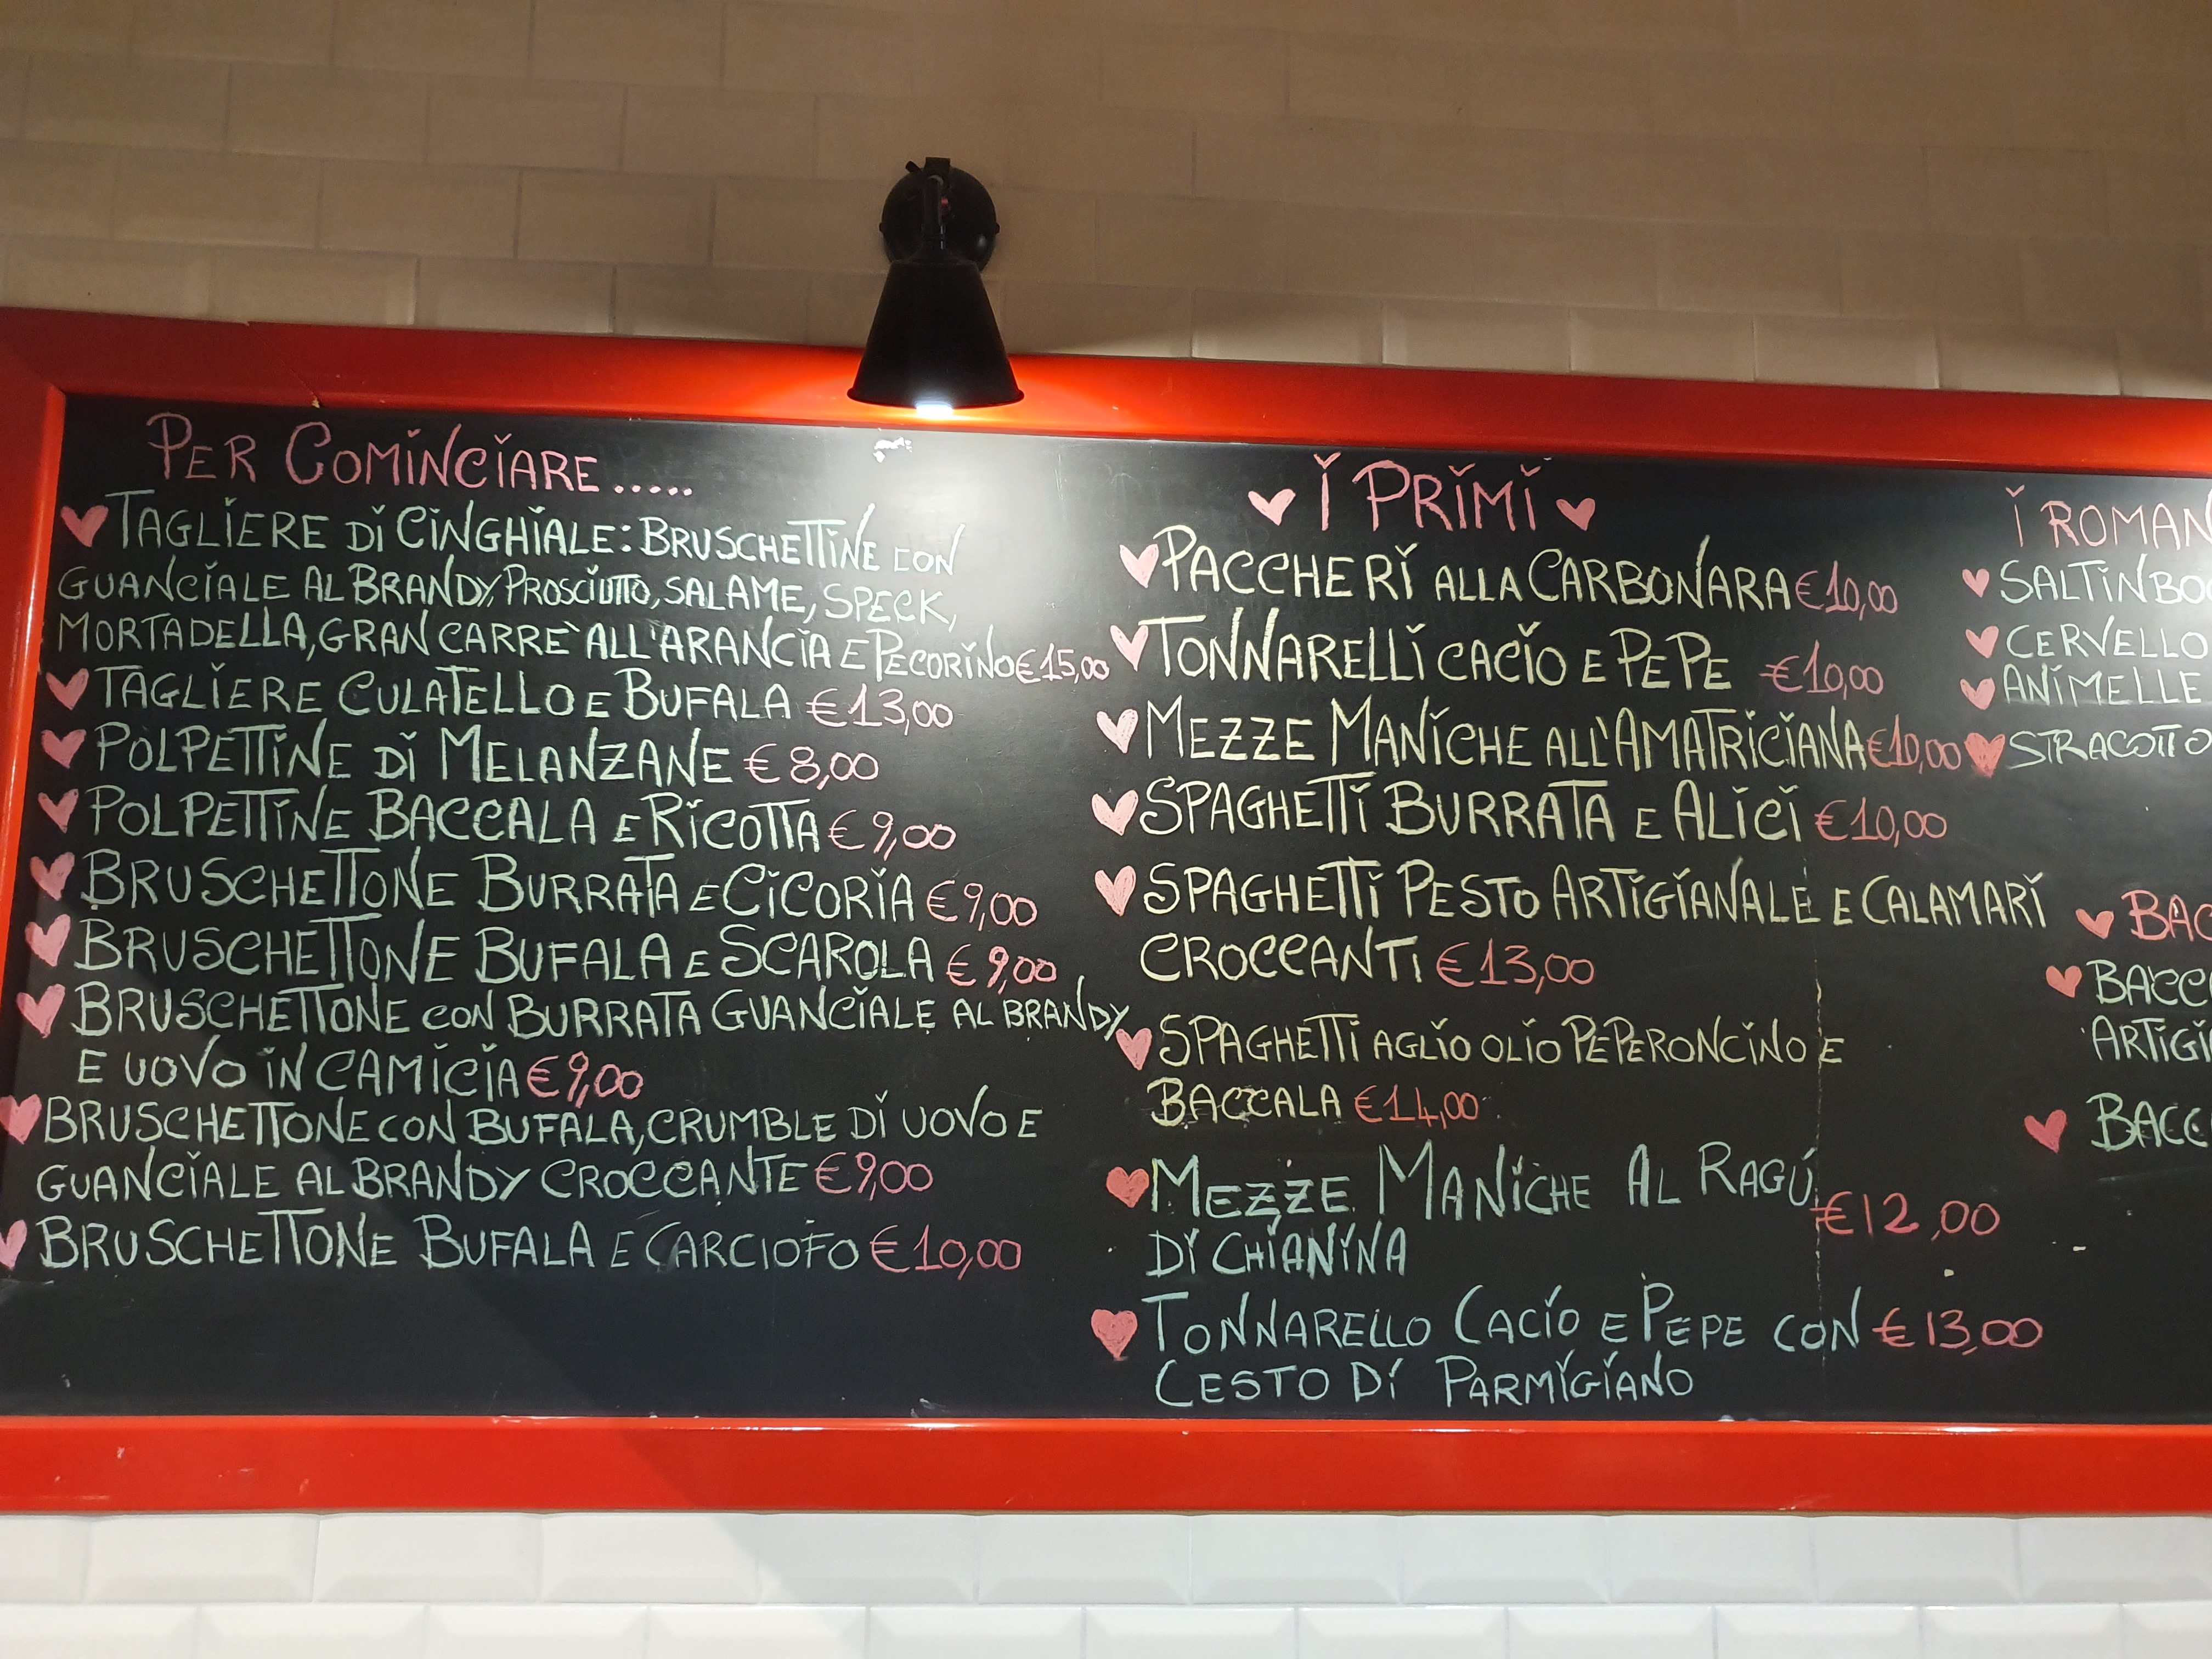 PER COMINCIARE.....
TAGLIERE DI CINGHIALE: BRUSCHETTINE CON
GUANCIALE AL BRANDY, PROSCIUTTO, SALAME, SPECK,
MORTADELLA, GRAN CARRE` ALL'ARANCIA E PECORINO €15,00
TAGLIERE CULATELLO E BUFALA €13,00
POLPETTINE DI MELANZANE €8,00
POLPETTINE BACCALA E RICOTTA €9,00
BRUSCHETTONE BURRATA E CICORIA €9,00
BRUSCHETTONE BUFALA E SCAROLA €9,00
BRUSCHETTONE CON BURRATA GUANCIALE AL BRANDY
E UOVO IN CAMICIA €9,00
BRUSCHETTONE CON BUFALA, CRUMBLE DI UOVO E
GUANCIALE AL BRANDY CROCCANTE €9,00
BRUSCHETTONE BUFALA E CARCIOFO €10,00
I PRIMI
PACCHERI ALLA CARBONARA €10,00
TONNARELLI CACIO E PEPE €10,00
MEZZE MANICHE ALL'AMATRICIANA €10,00
SPAGHETTI BURRATA E ALICI €10,00
SPAGHETTI PESTO ARTIGIANALE E CALAMARI
CROCCANTI €13,00
SPAGHETTI AGLIO OLIO PEPERONCINO E
BACCALA €14,00
MEZZE MANICHE AL RAGÚ
DI CHIANINA €12,00
TONNARELLO CACIO E PEPE CON €13,00
CESTO DI PARMIGIANO
I ROMAN
SALTINBO
CERVELLO
ANIMELLE
STRACOTTO
BAC
BACC
ARTIGI
BACC